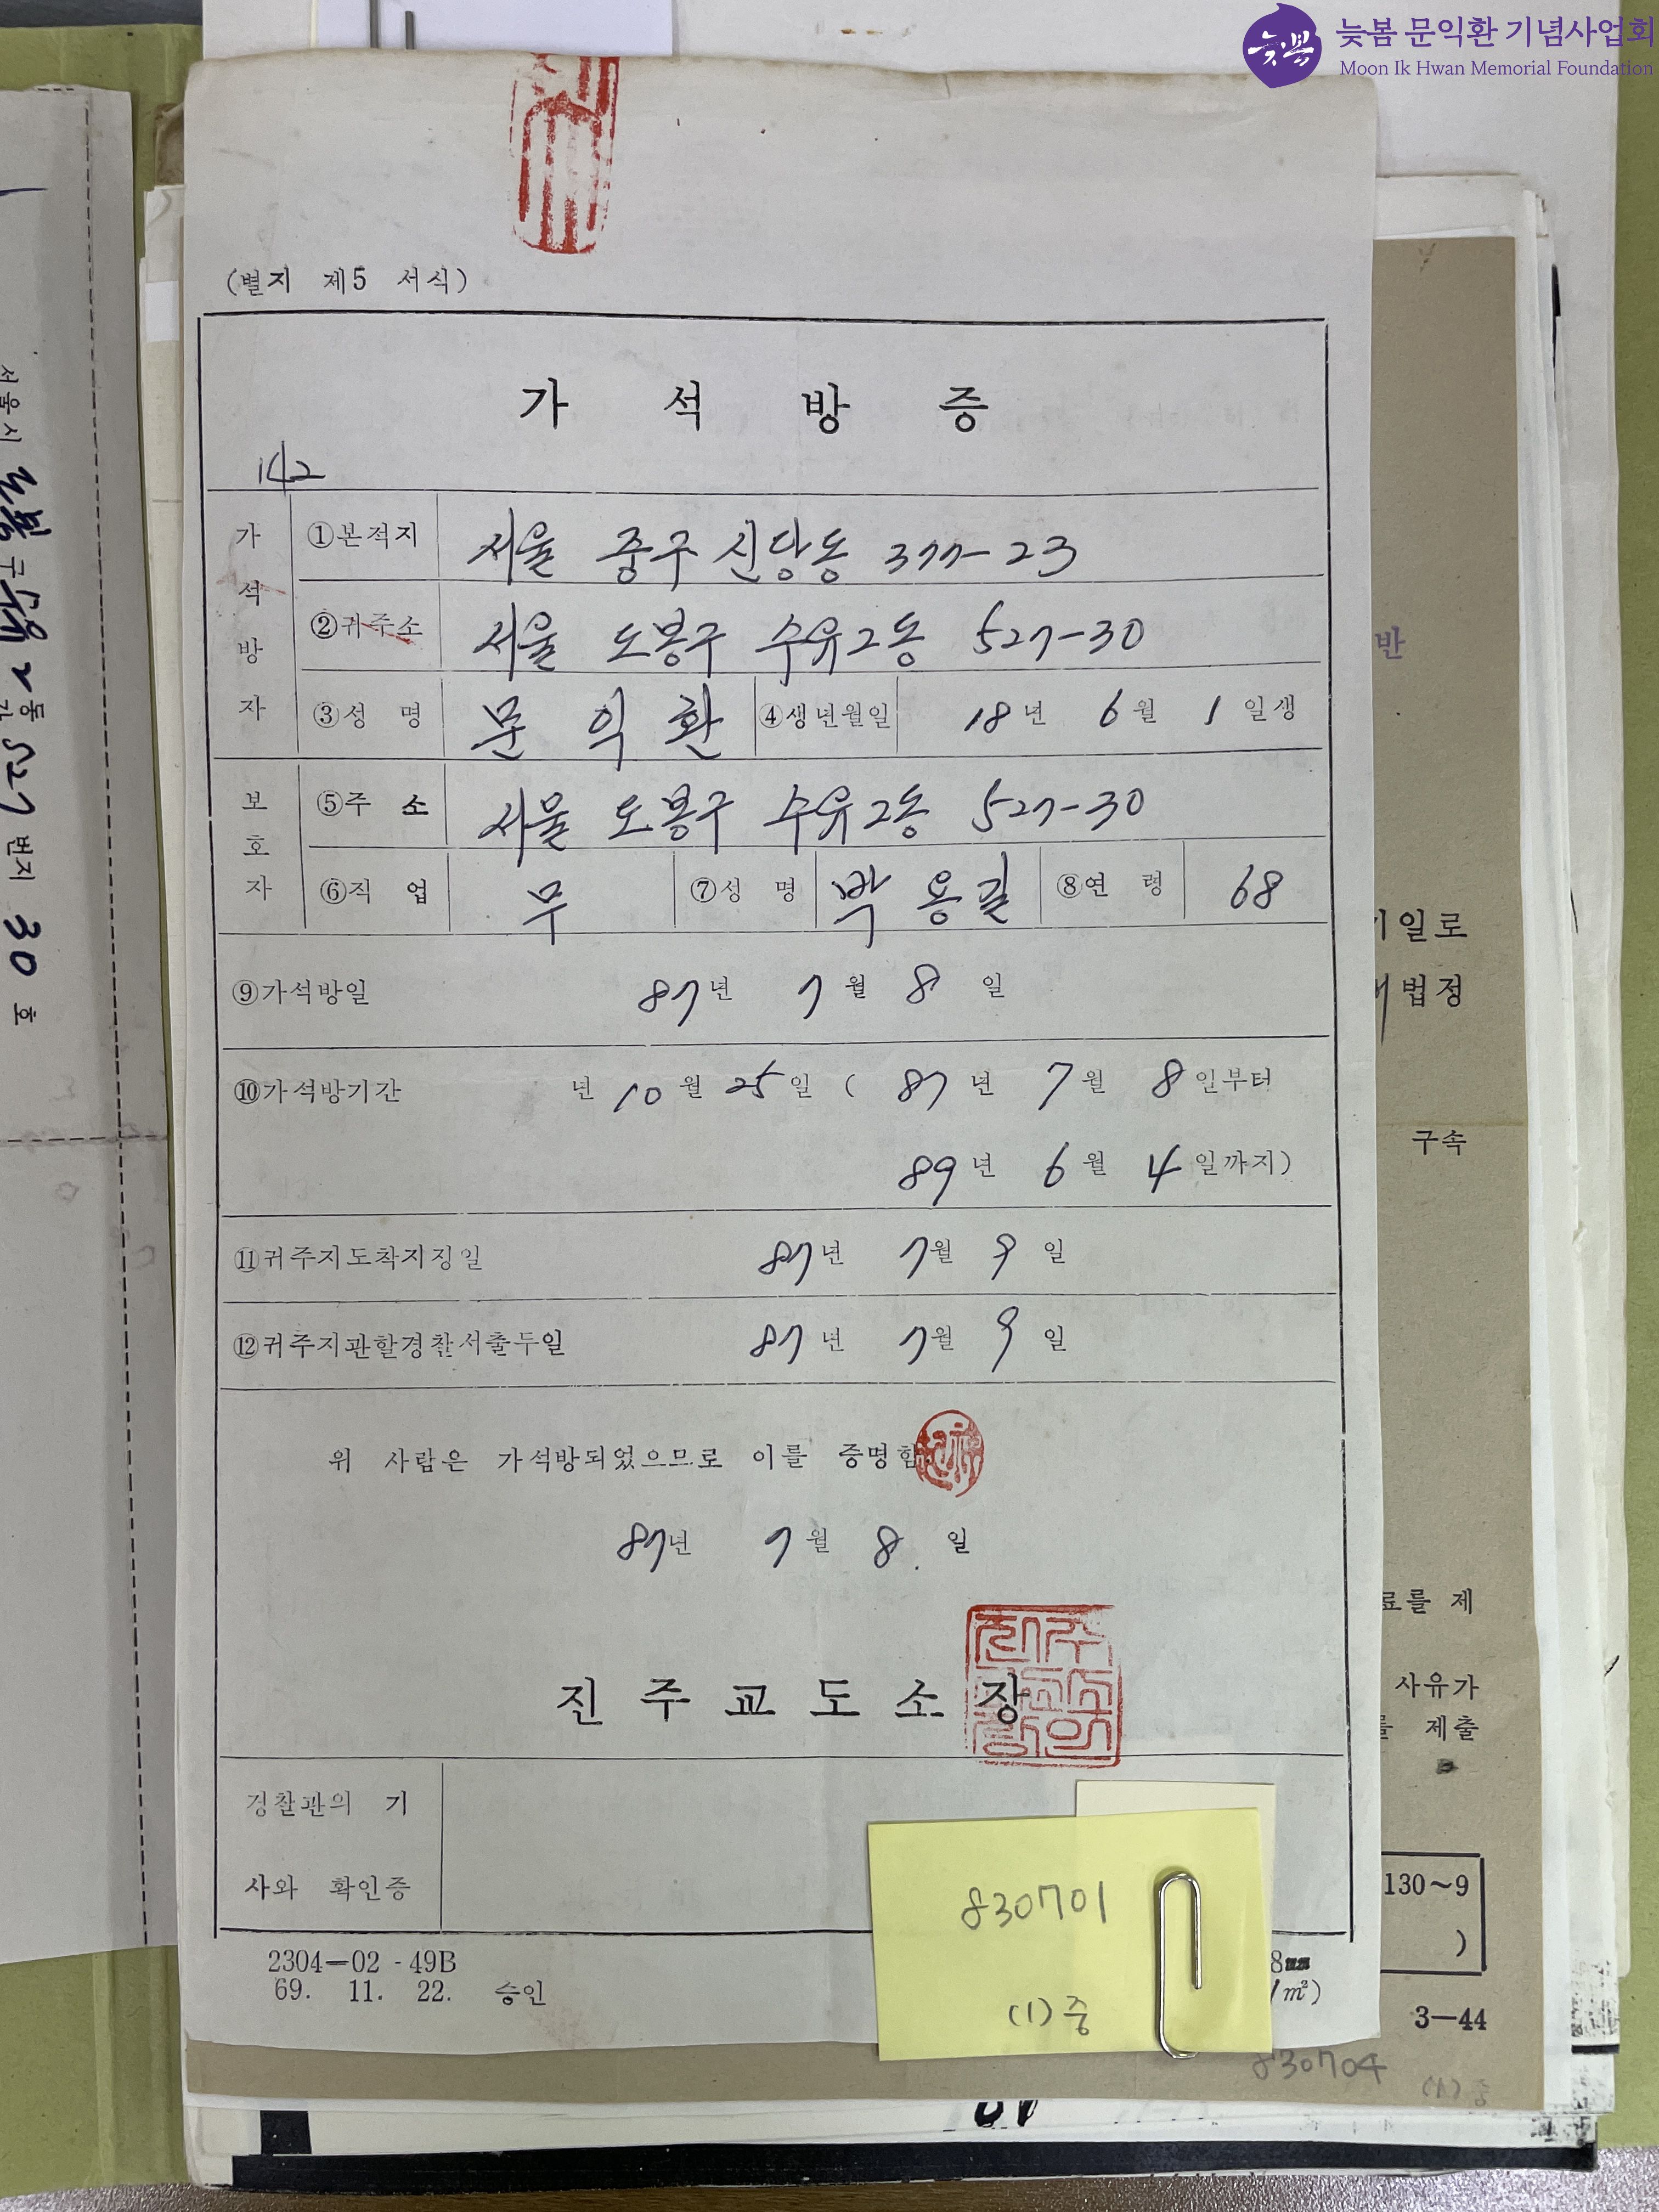 늦봄 문익환 기념사업회
Moon Ik Hwan Memorial Foundation
(별지 제5 서식)
가 석 방 증
142
가석방자
①본적지 서울 중구 신당동 377-23
②귀주소 서울 도봉구 수유2동 527-30
③성 명 문 익 환 ④생년월일 18년 6월 1일생
보호자
⑤주 소 서울 도봉구 수유2동 527-30
⑥직 업 무 ⑦성 명 박 용길 ⑧연 령 68
⑨가석방일 87년 7월 8일
⑩가석방기간 년 10월 25일 ( 87년 7월 8일부터
89년 6월 4일까지)
⑪귀주지도착지정일 87년 7월 9일
⑫귀주지관할경찰서출두일 87년 7월 9일
위 사람은 가석방되었으므로 이를 증명함
87년 7월 8. 일
진 주 교 도 소 장
진주교도소장인
경찰관의 기
사와 확인증
2304-02 -49B
69. 11. 22. 승인
830701
(1)중
서울시 도봉구 수유2동 527번지 30호
반
기일로
법정
구속
료를 제
사유가
를 제출
130~9
)
3-44
830704
(1)중